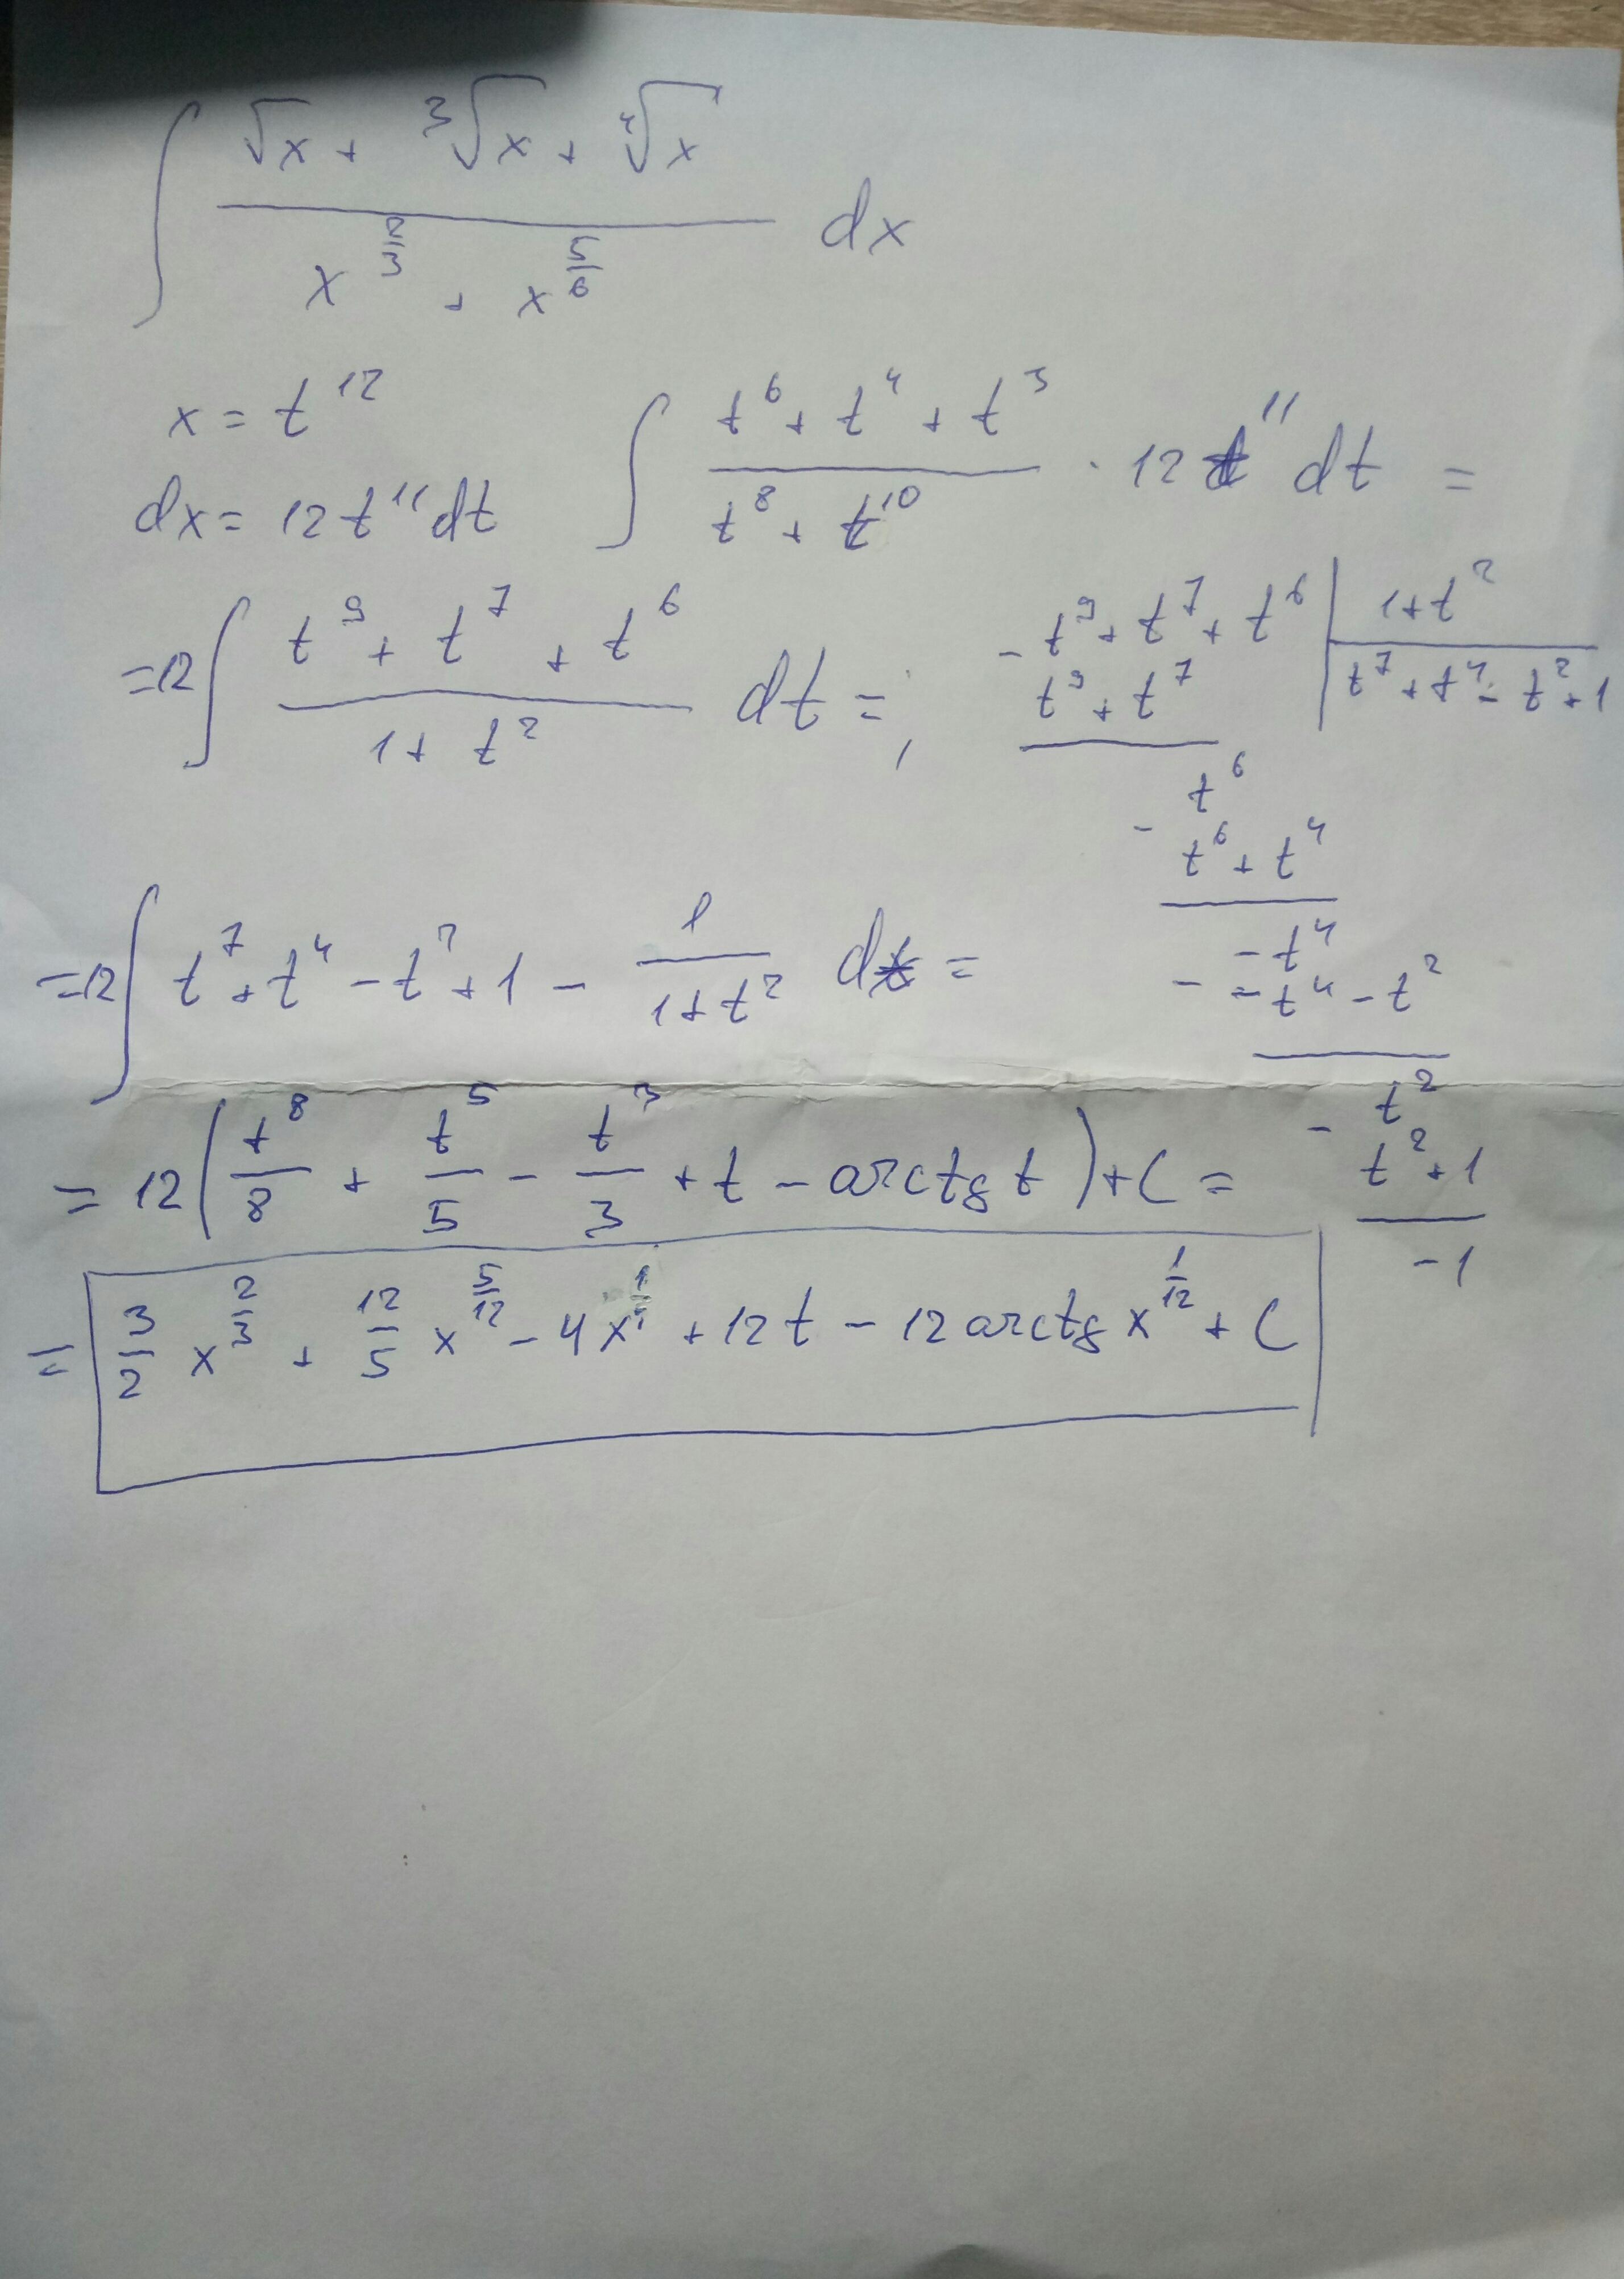 ∫ (√x + ³√x + ⁴√x) / (x^(2/3) + x^(5/6)) dx
x = t^12
dx = 12 t^11 dt
∫ (t^6 + t^4 + t^3) / (t^8 + t^10) · 12 t^11 dt =
= 12 ∫ (t^9 + t^7 + t^6) / (1 + t^2) dt = ;
- t^9 + t^7 + t^6 | 1 + t^2
t^9 + t^7 | t^7 + t^4 - t^2 + 1
t^6
- t^6 + t^4
-t^4
- -t^4 - t^2
t^2
- t^2 + 1
-1
= 12 ∫ t^7 + t^4 - t^2 + 1 - 1 / (1 + t^2) dt =
= 12 (t^8/8 + t^5/5 - t^3/3 + t - arctg t) + C =
= 3/2 x^(2/3) + 12/5 x^(5/12) - 4x + 12t - 12 arctg x^(1/12) + C